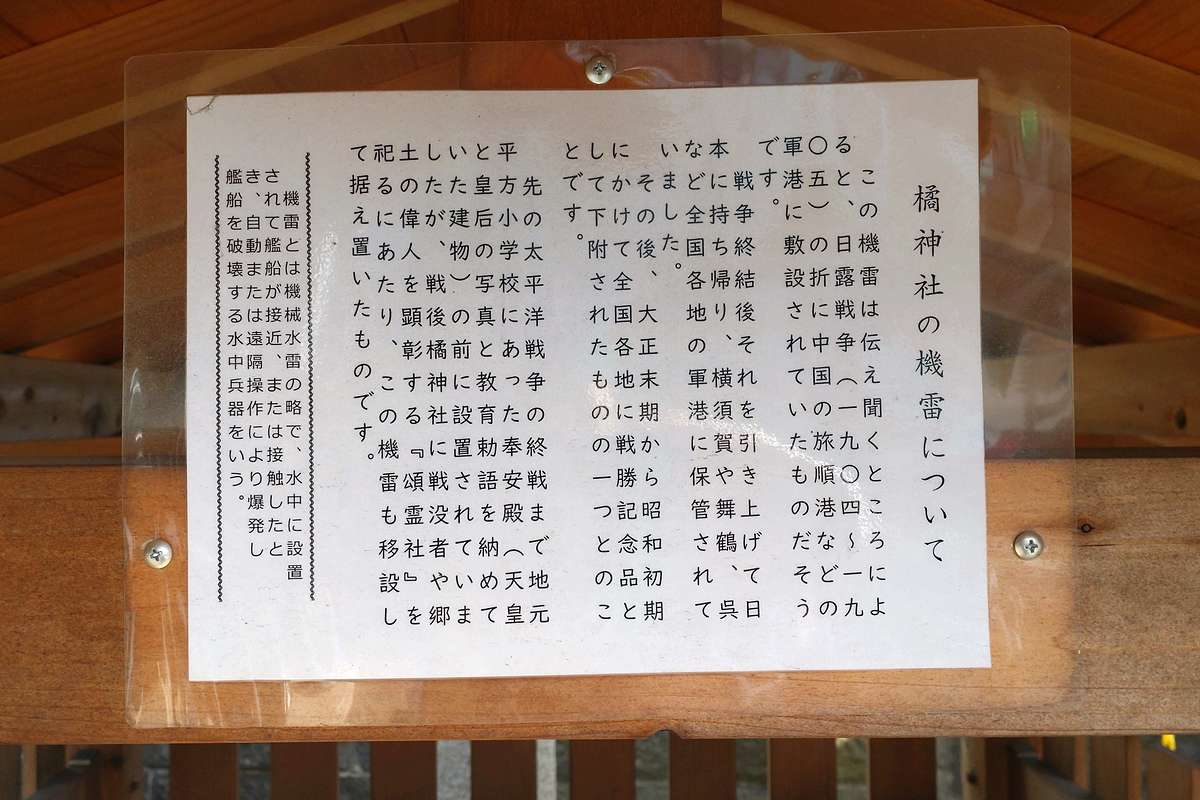 橘神社の機雷について
この機雷は伝え聞くところによ
ると、日露戦争（一九〇四〜一九
〇五）の折に中国の旅順港などの
軍港に敷設されていたものだそう
です。
戦争終結後それを引き上げて日
本に持ち帰り、横須賀や舞鶴、呉
など全国各地の軍港に保管されて
いました。
その後、大正末期から昭和初期
にかけて全国各地に戦勝記念品と
して下附されたものの一つとのこ
とです。
先の太平洋戦争の終戦まで地元
平方小学校にあった奉安殿（天皇
と皇后の写真と教育勅語を納めて
いた建物）の前に設置されていま
したが、戦後橘神社に戦没者や郷
土の偉人を顕彰する『頌霊社』を
祀るにあたり、この機雷も移設し
て据え置いたものです。
機雷とは機械水雷の略で、水中に設置
されて艦船が接近、または接触したと
き、自動または遠隔操作により爆発し
艦船を破壊する水中兵器をいう。